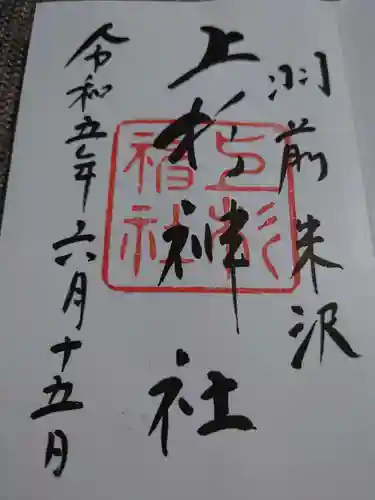 羽前朱沢
上杉神社
上杉神社
令和五年六月十五日